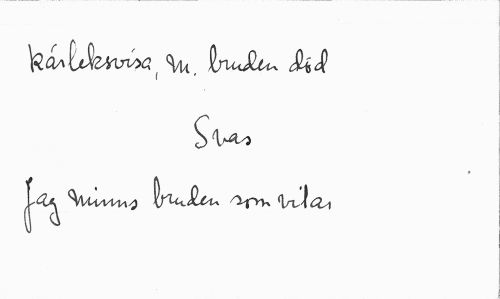 kärleksvisa, m. bruden död
Svas
Jag minns bruden som vilar